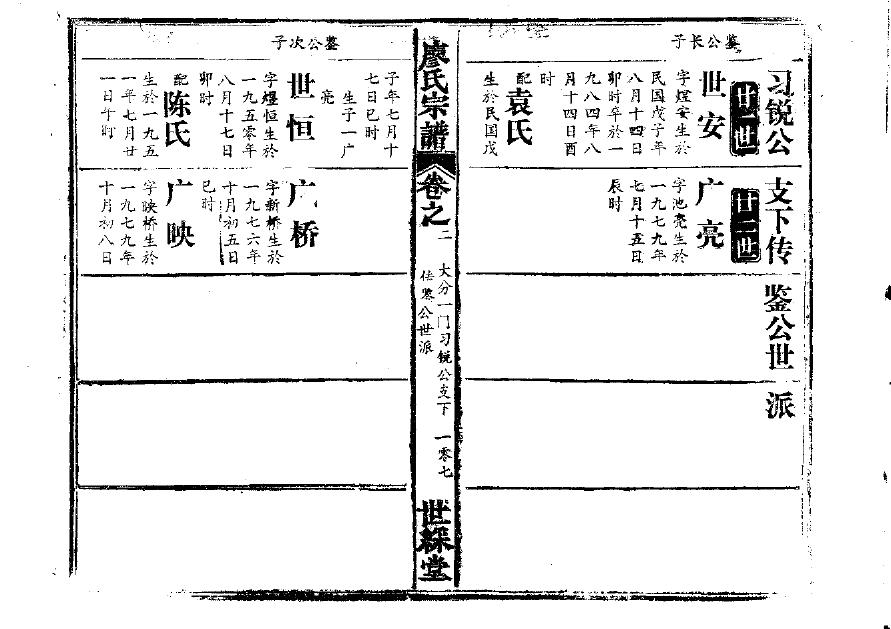 习锐公
支下传
鉴公世
派
廿一世
廿二世
鉴公长子
世安
字煌安生於
民国戊子年
八月十四日
卯时卒於一
九八四年八
月十四日酉
时
配袁氏
生於民国戊
子年七月十
七日巳时
生子一广
亮
广亮
字池亮生於
一九七九年
七月十五日
辰时
廖氏宗譜
卷之二
大分一门习锐公支下
传鉴公世派
一零七
世綵堂
鉴公次子
世恒
字煌恒生於
一九五零年
八月十七日
卯时
配陈氏
生於一九五
一年七月廿
一日午时
广桥
字新桥生於
一九七六年
十月初五日
巳时
广映
字映桥生於
一九七九年
十月初八日